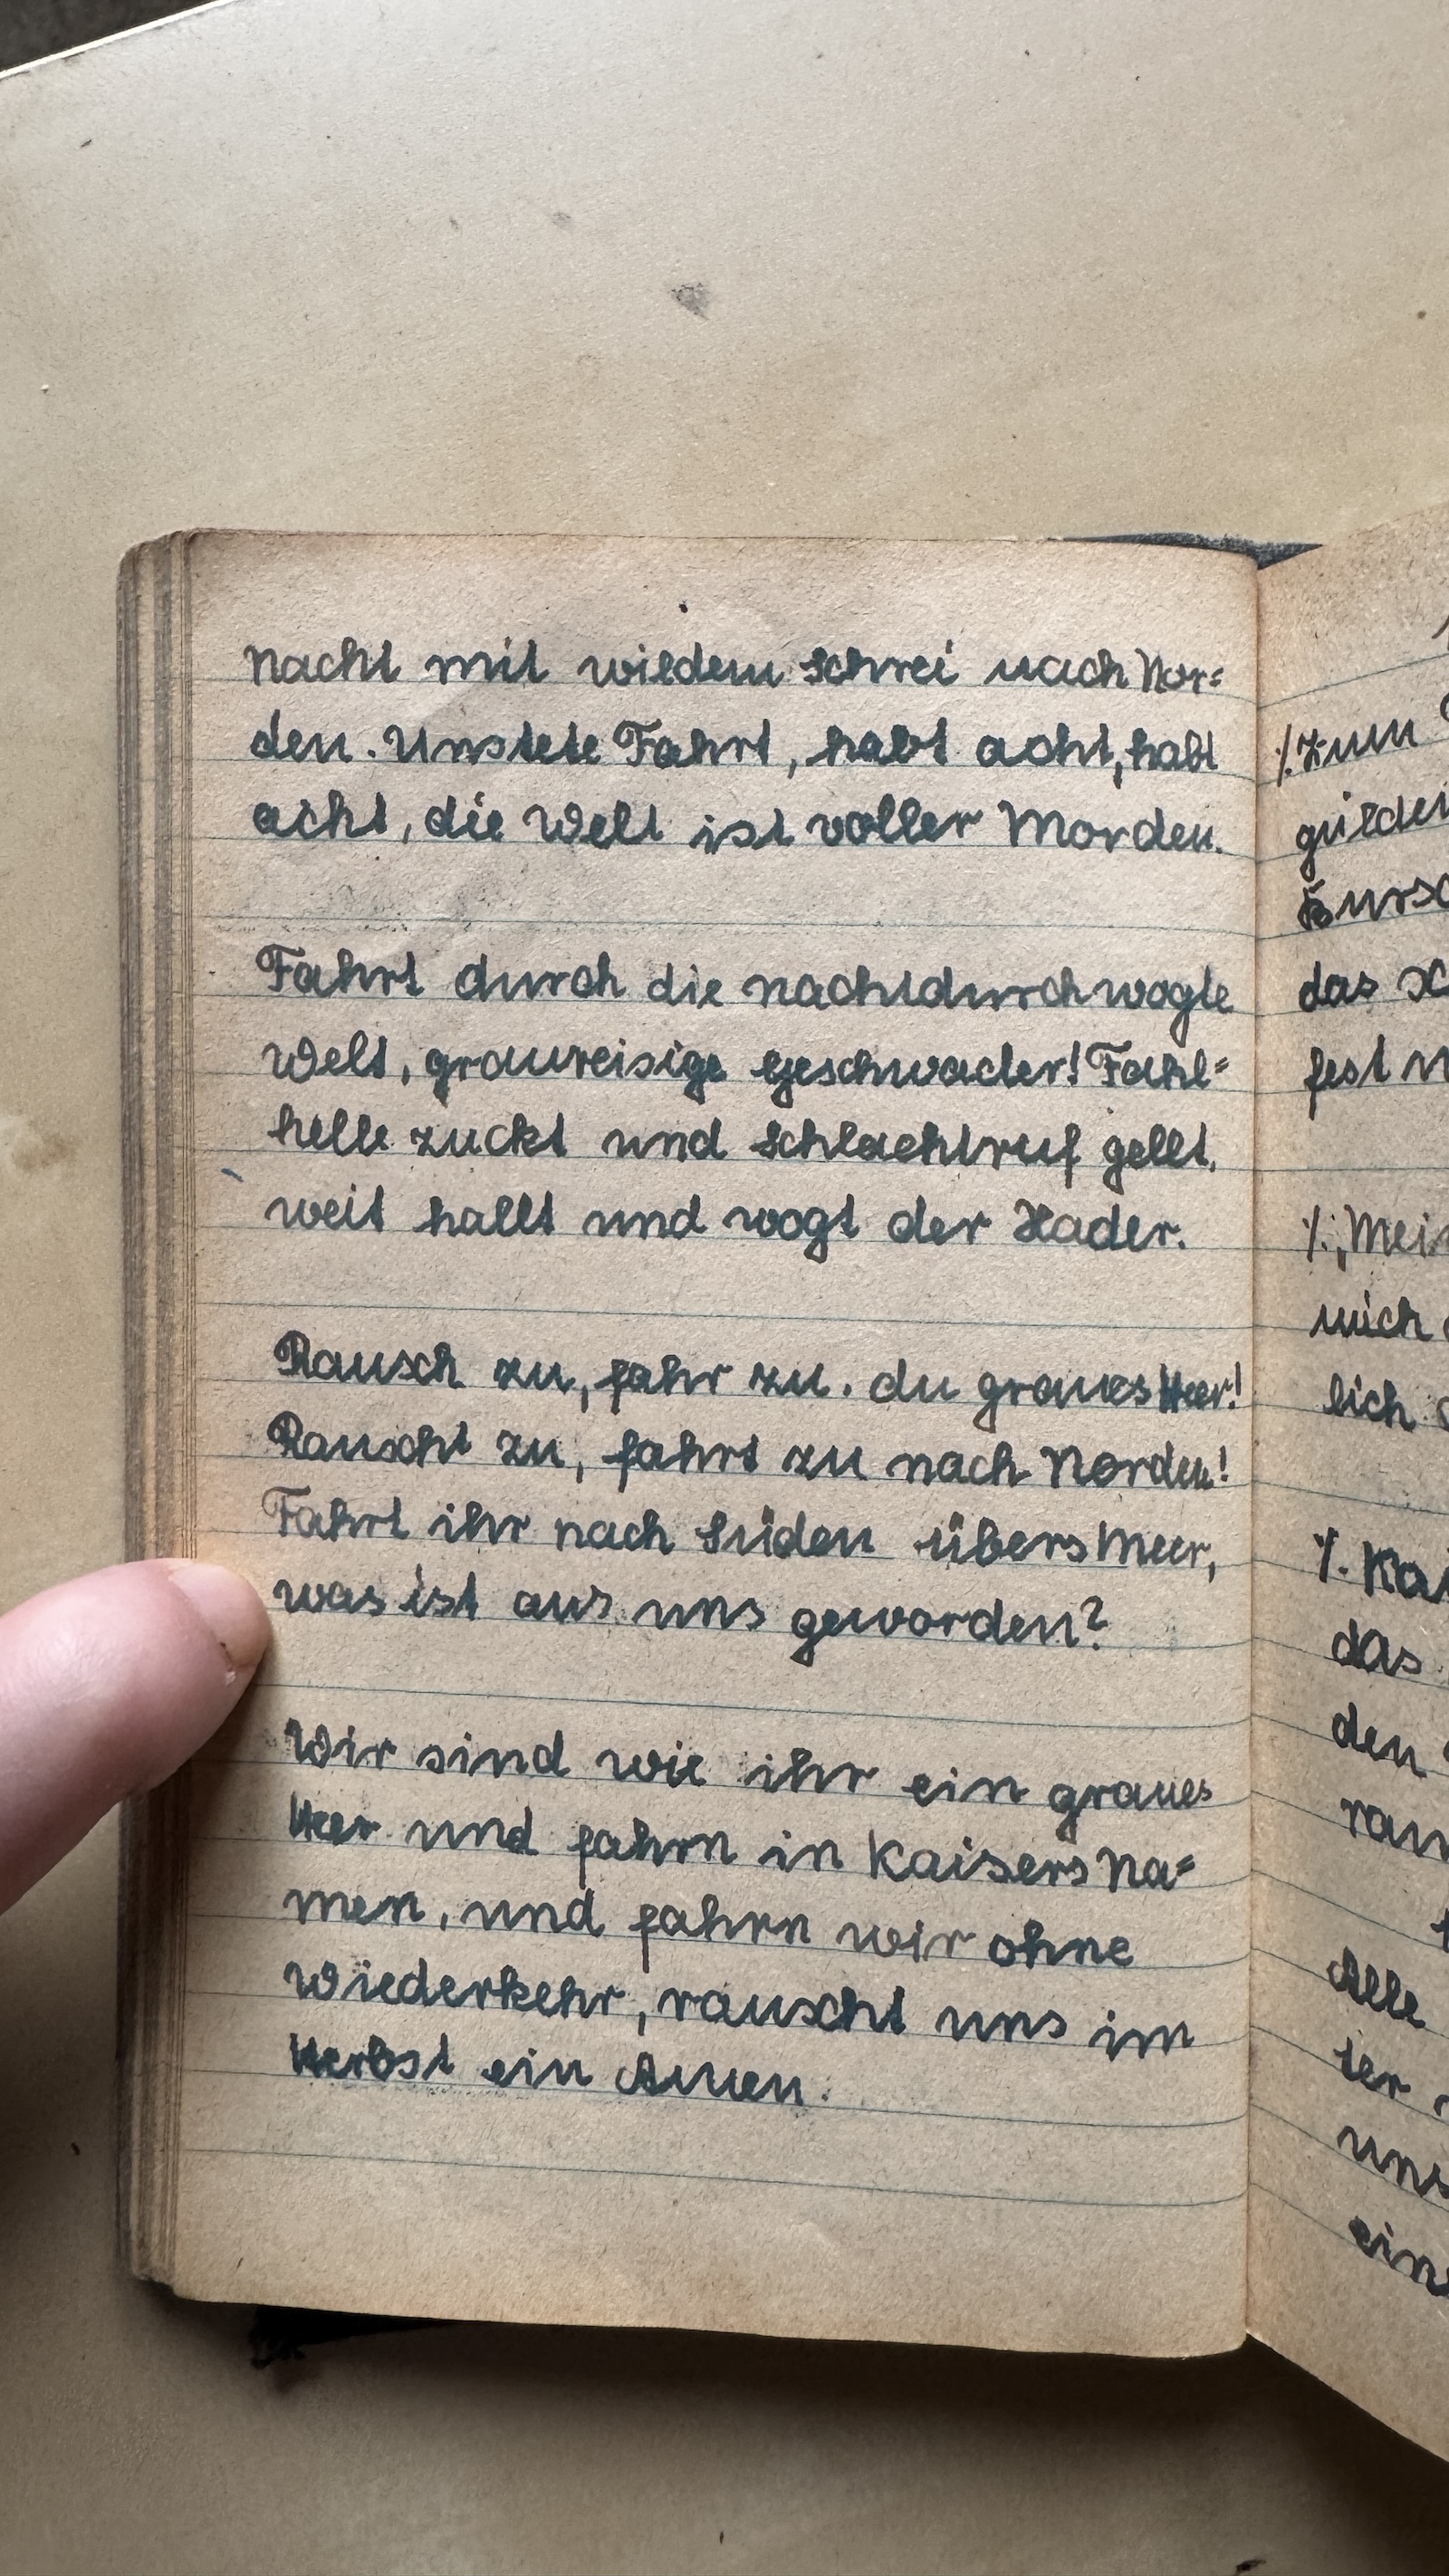 nacht mit wildem Schrei nach Nor=
den. Unstete Fahrt, habt acht, habt
acht, die Welt ist voller Morden.
Fahrt durch die nachtdurchwogte
Welt, graureisige Geschwader! Fahl=
helle zuckt und Schlachtruf gellt,
weit hallt und wogt der Hader.
Rausch zu, fahr zu. du graues Heer!
Rauscht zu, fahrt zu nach Norden!
Fahrt ihr nach Süden übers Meer,
was ist aus uns geworden?
Wir sind wie ihr ein graues
Heer und fahrn in Kaisers Na=
men, und fahrn wir ohne
Wiederkehr, rauscht uns im
Herbst ein Amen.
%. Zum
das
fest
mich
lich
das
den
Alle
ter